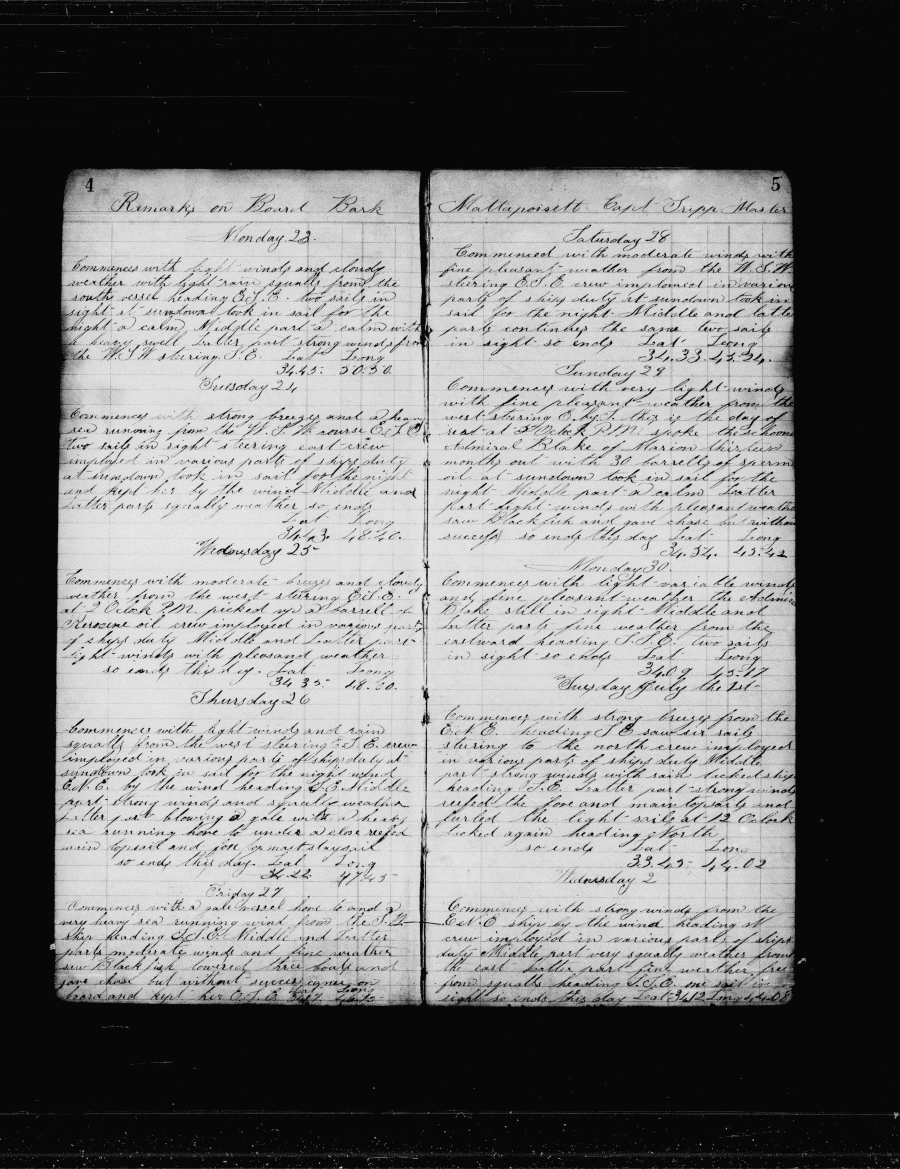 4
Remarks on Board Bark
Monday 23.
Commences with light winds and cloudy
weather with light rain squalls from the
south vessel heading E.S.E. two sails in
sight at sundown took in sail for the
night a calm Middle part a calm with
a heavy swell Latter part strong winds from
the W.S.W steering S.E. Lat Long
34.45- 50.50
Tuesday 24
Commences with strong breezes and a heavy
sea running from the W.S.W course E.S.E
two sails in sight steering east crew
employed in various parts of ships duty
at sundown took in sail for the night
and kept her by the wind Middle and
Latter parts squally weather so ends
Lat Long
34.43 48.40.
Wednesday 25-
Commences with moderate breezes and cloudy
weather from the west steering E.S.E.
at 2 Oclock P.M. picked up a barrell of
Kerosine oil crew imployed in various parts
of ships duty Middle and Latter part
light winds with pleasand weather
so ends this day. Lat Long
34 35- 48.50.
Thursday 26
Commences with light winds and rain
squalls from the west steering S.E. crew
imployed in various parts of ship duty at
sundown took in sail for the night wind
E.N.E. by the wind heading S.E. Middle
part strong winds and squally weather
Latter part blowing a gale with a heavy
sea running hove to under a close reefed
main topsail and fore topmast staysail
so ends this day. Lat Long
34.22 47.45-
Friday 27
Commences with a gale vessel hove to and a
very heavy sea running wind from the S.W
Ship heading S.S.E. Middle and Latter
parts moderate winds and fine weather
saw Blackfish lowered three boats and
gave chase but without success came on
board and kept her E.S.E. Lat Long
5
Mattapoisett Capt Tripp Master
Saturday 28
Commenced with moderate winds with
fine pleasant weather from the W.S.W.
steering E.S.E. crew imploned in various
parts of ships duty at sundown took in
sail for the night Middle and latter
parts continues the same two sails
in sight so ends Lat Long
34.33. 45-54.
Sunday 29
Commences with very light winds
with fine pleasant weather from the
west stering E. by S. this is the day of
rest at 5 Oclock P.M. spoke the schooner
Admiral Blake of Marion thirteen
months out with 30 barrells of sperm
oil at sundown took in sail for the
night Middle part a calm Latter
part light winds with pleasant weather
saw Blackfish and gave chase but without
success so ends this day Lat Long
34.34. 45-42
Monday 30.
Commences with light variable winds
and fine pleasant weather the Admiral
Blake still in sight Middle and
Latter parts fine weather from the
eastward heading S.S.E. two sails
in sight so ends Lat Long
34.09 45-17
Tuesday July the 1st-
Commences with strong breezes from the
E.N.E. heading S.E. saw six sails
stering to the north crew imployed
in various parts of ships duty Middle
part strong winds with rain tacked ship
heading S.E. Latter part strong winds
reefed the fore and main topsails and
furled the light sails at 12 Oclock
tacked again heading North
so ends Lat Long
33.45- 44.02
Wednesday 2
Commences with strong winds from the
E.N.E ship by the wind heading N
crew imployed in various parts of ships
duty Middle part very squally weather from
the east Latter part fine weather, free
from squalls heading S.S.E. one sail in
sight so ends this day Lat 34.12 Long 44.08